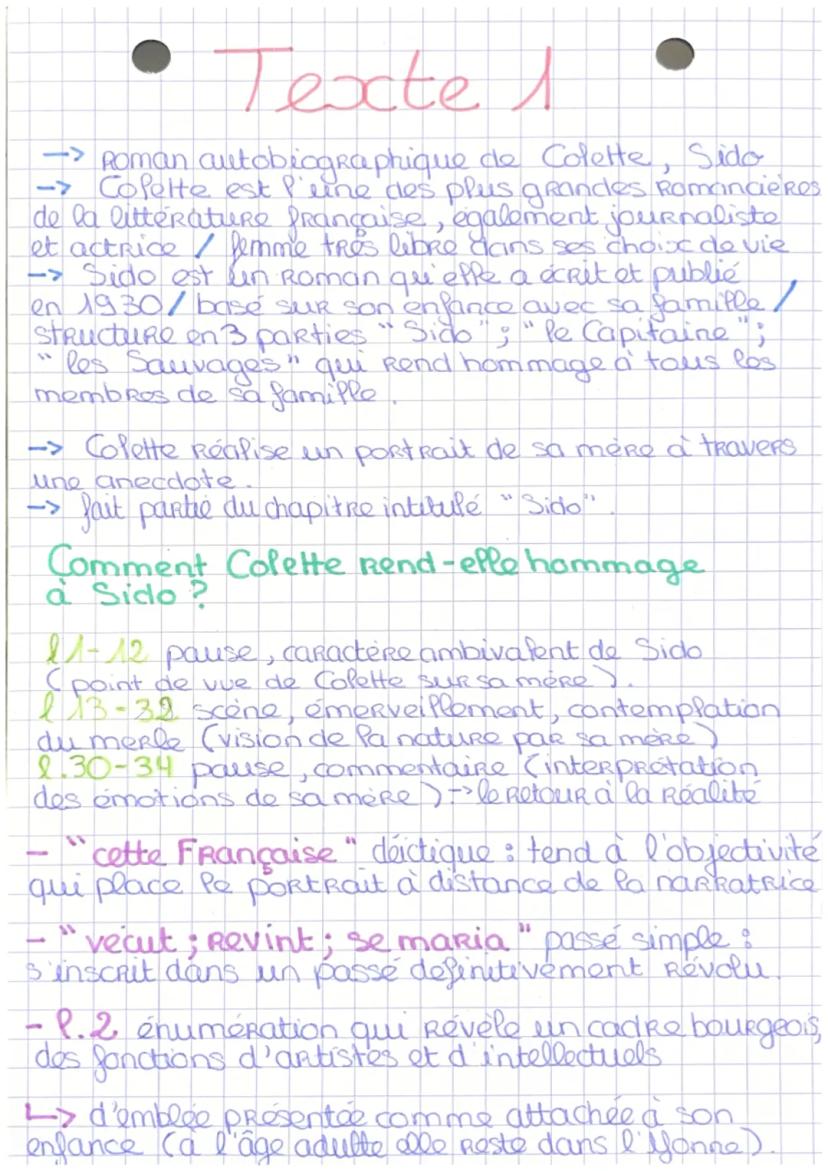 Texte 1
-> Roman autobiographique de Colette, Sido
-> Colette est l'une des plus grandes romancières
de la littérature française, également journaliste
et actrice / femme très libre dans ses choix de vie
-> Sido est un roman qu'elle a écrit et publié
en 1930 / basé sur son enfance avec sa famille /
structure en 3 parties "Sido" ; "le Capitaine" ;
"les Sauvages" qui rend hommage à tous les
membres de sa famille.
-> Colette réalise un portrait de sa mère à travers
une anecdote.
-> fait partie du chapitre intitulé "Sido".
Comment Colette rend-elle hommage
à Sido ?
l 1-12 pause, caractère ambivalent de Sido
(point de vue de Colette sur sa mère).
l 13-32 scène, émerveillement, contemplation
du merle (vision de la nature par sa mère)
l.30-34 pause, commentaire (interprétation
des émotions de sa mère) -> le retour à la réalité
- "cette Française" déictique : tend à l'objectivité
qui place le portrait à distance de la narratrice
- "vécut ; revint ; se maria" passé simple :
s'inscrit dans un passé définitivement révolu.
- l.2 énumération qui révèle un cadre bourgeois,
des fonctions d'artistes et d'intellectuels
↳ d'emblée présentée comme attachée à son
enfance (à l'âge adulte elle reste dans l'Yonne).